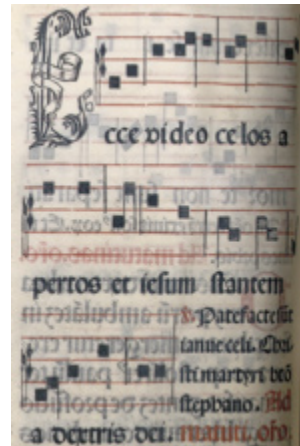 Ecce video celos a
pertos et iesum stantem
a dextris dei.
℟. Patefacte sūt
ianue celi. Chri
sti martyri beō
stephano. Ad